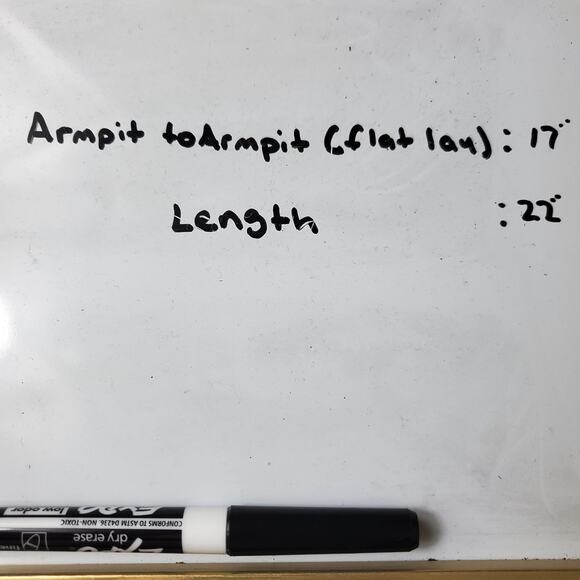 Armpit to Armpit (flat lay): 17"
Length : 22"
low odor
CONFORMS TO ASTM D4236. NON-TOXIC
dry erase